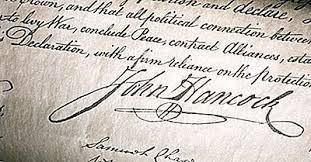 and declare,
Crown, and that all political connection between
to levy War, conclude Peace, contract Alliances, esta
Declaration, with a firm reliance on the Protectio
John Hancock
Samuel Chase